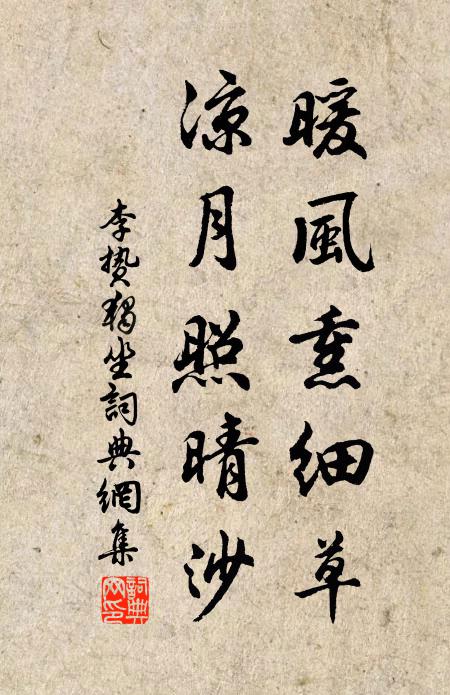 暖風熏細草
凉月照晴沙
李贄獨坐詞典網集
詞典網印